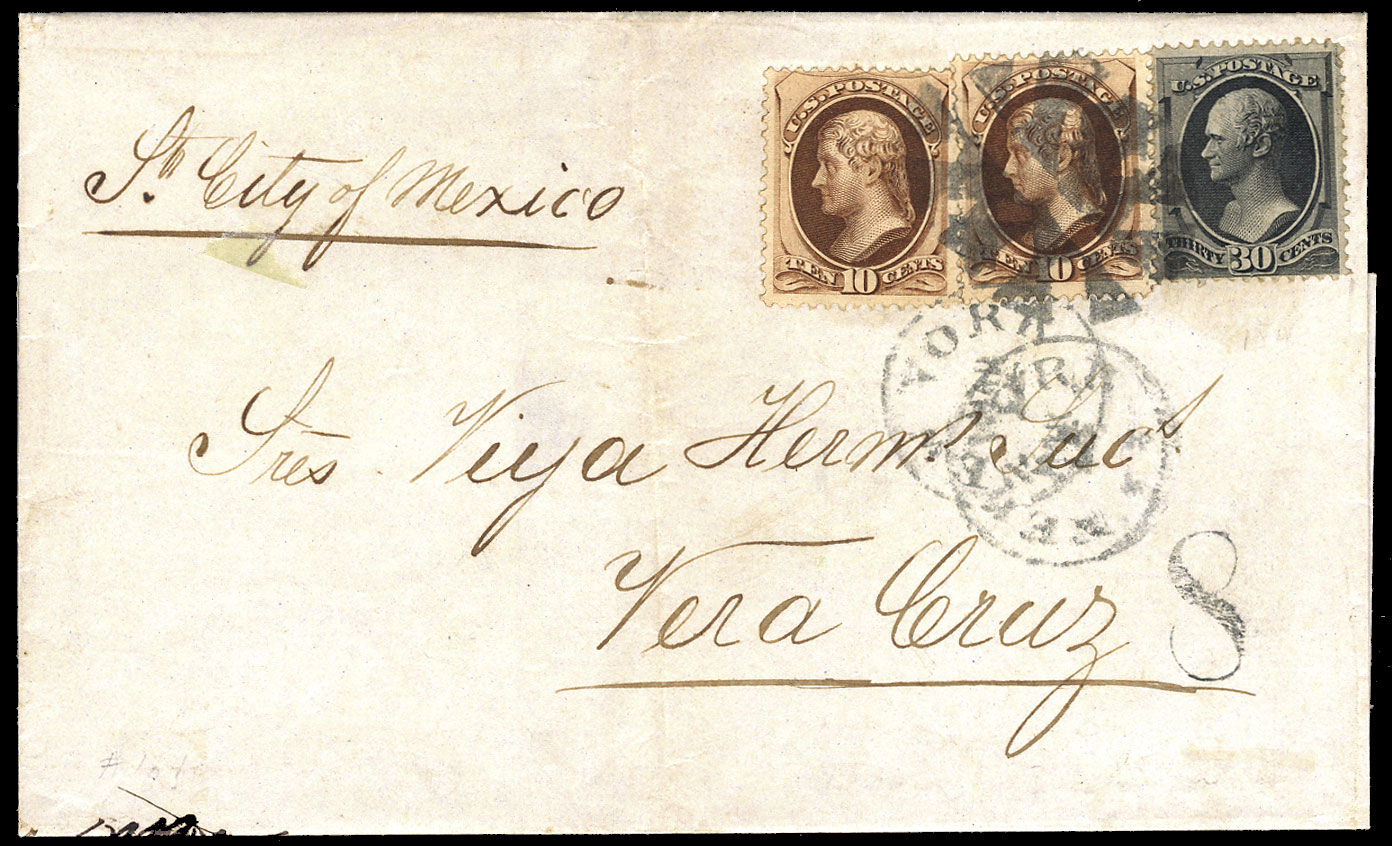 U.S. POSTAGE
TEN 10 CENTS
U.S. POSTAGE
TEN 10 CENTS
U.S. POSTAGE
THIRTY 30 CENTS
St. City of Mexico
YORK
Sres. Viya Herms. Sucs
Vera Cruz
8